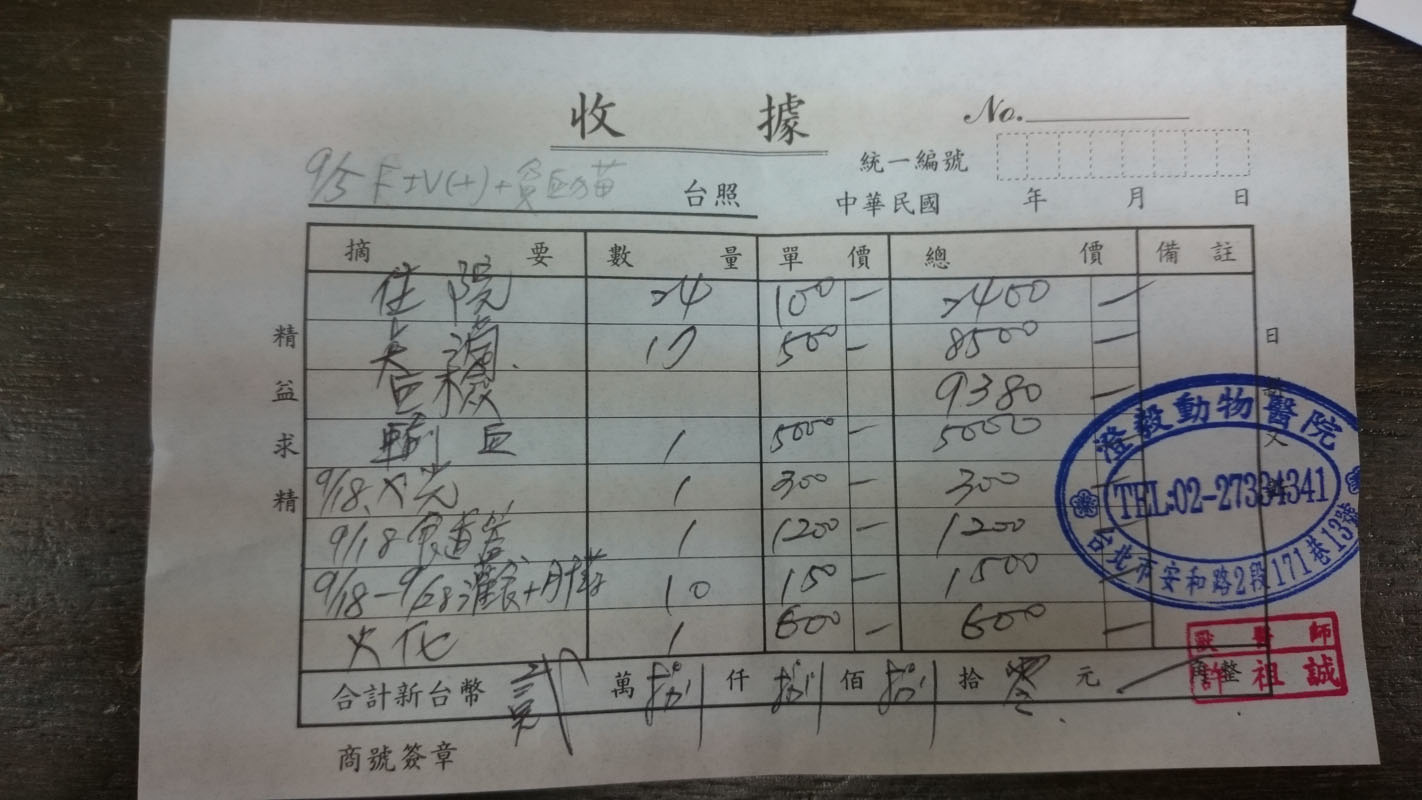 收 據
No.
統一編號
9/5 FIV(+)+貧血貓 台照
中華民國 年 月 日
摘 要 數 量 單 價 總 價 備 註
住院 24 100 — 2400 —
點滴 17 500 — 8500 —
血檢 9380 —
輸血 1 5000 — 5000
9/18 X光 1 300 — 300
9/18 食道管 1 1200 — 1200
9/18-9/28 灌食+ 10 150 — 1500
火化 1 600 — 600 —
合計新台幣 貳 萬 捌 仟 捌 佰 捌 拾 零 元 整
商號簽章
精益求精
澄毅動物醫院
TEL:02-27334341
台北市安和路2段171巷13號
獸醫師
許祖誠